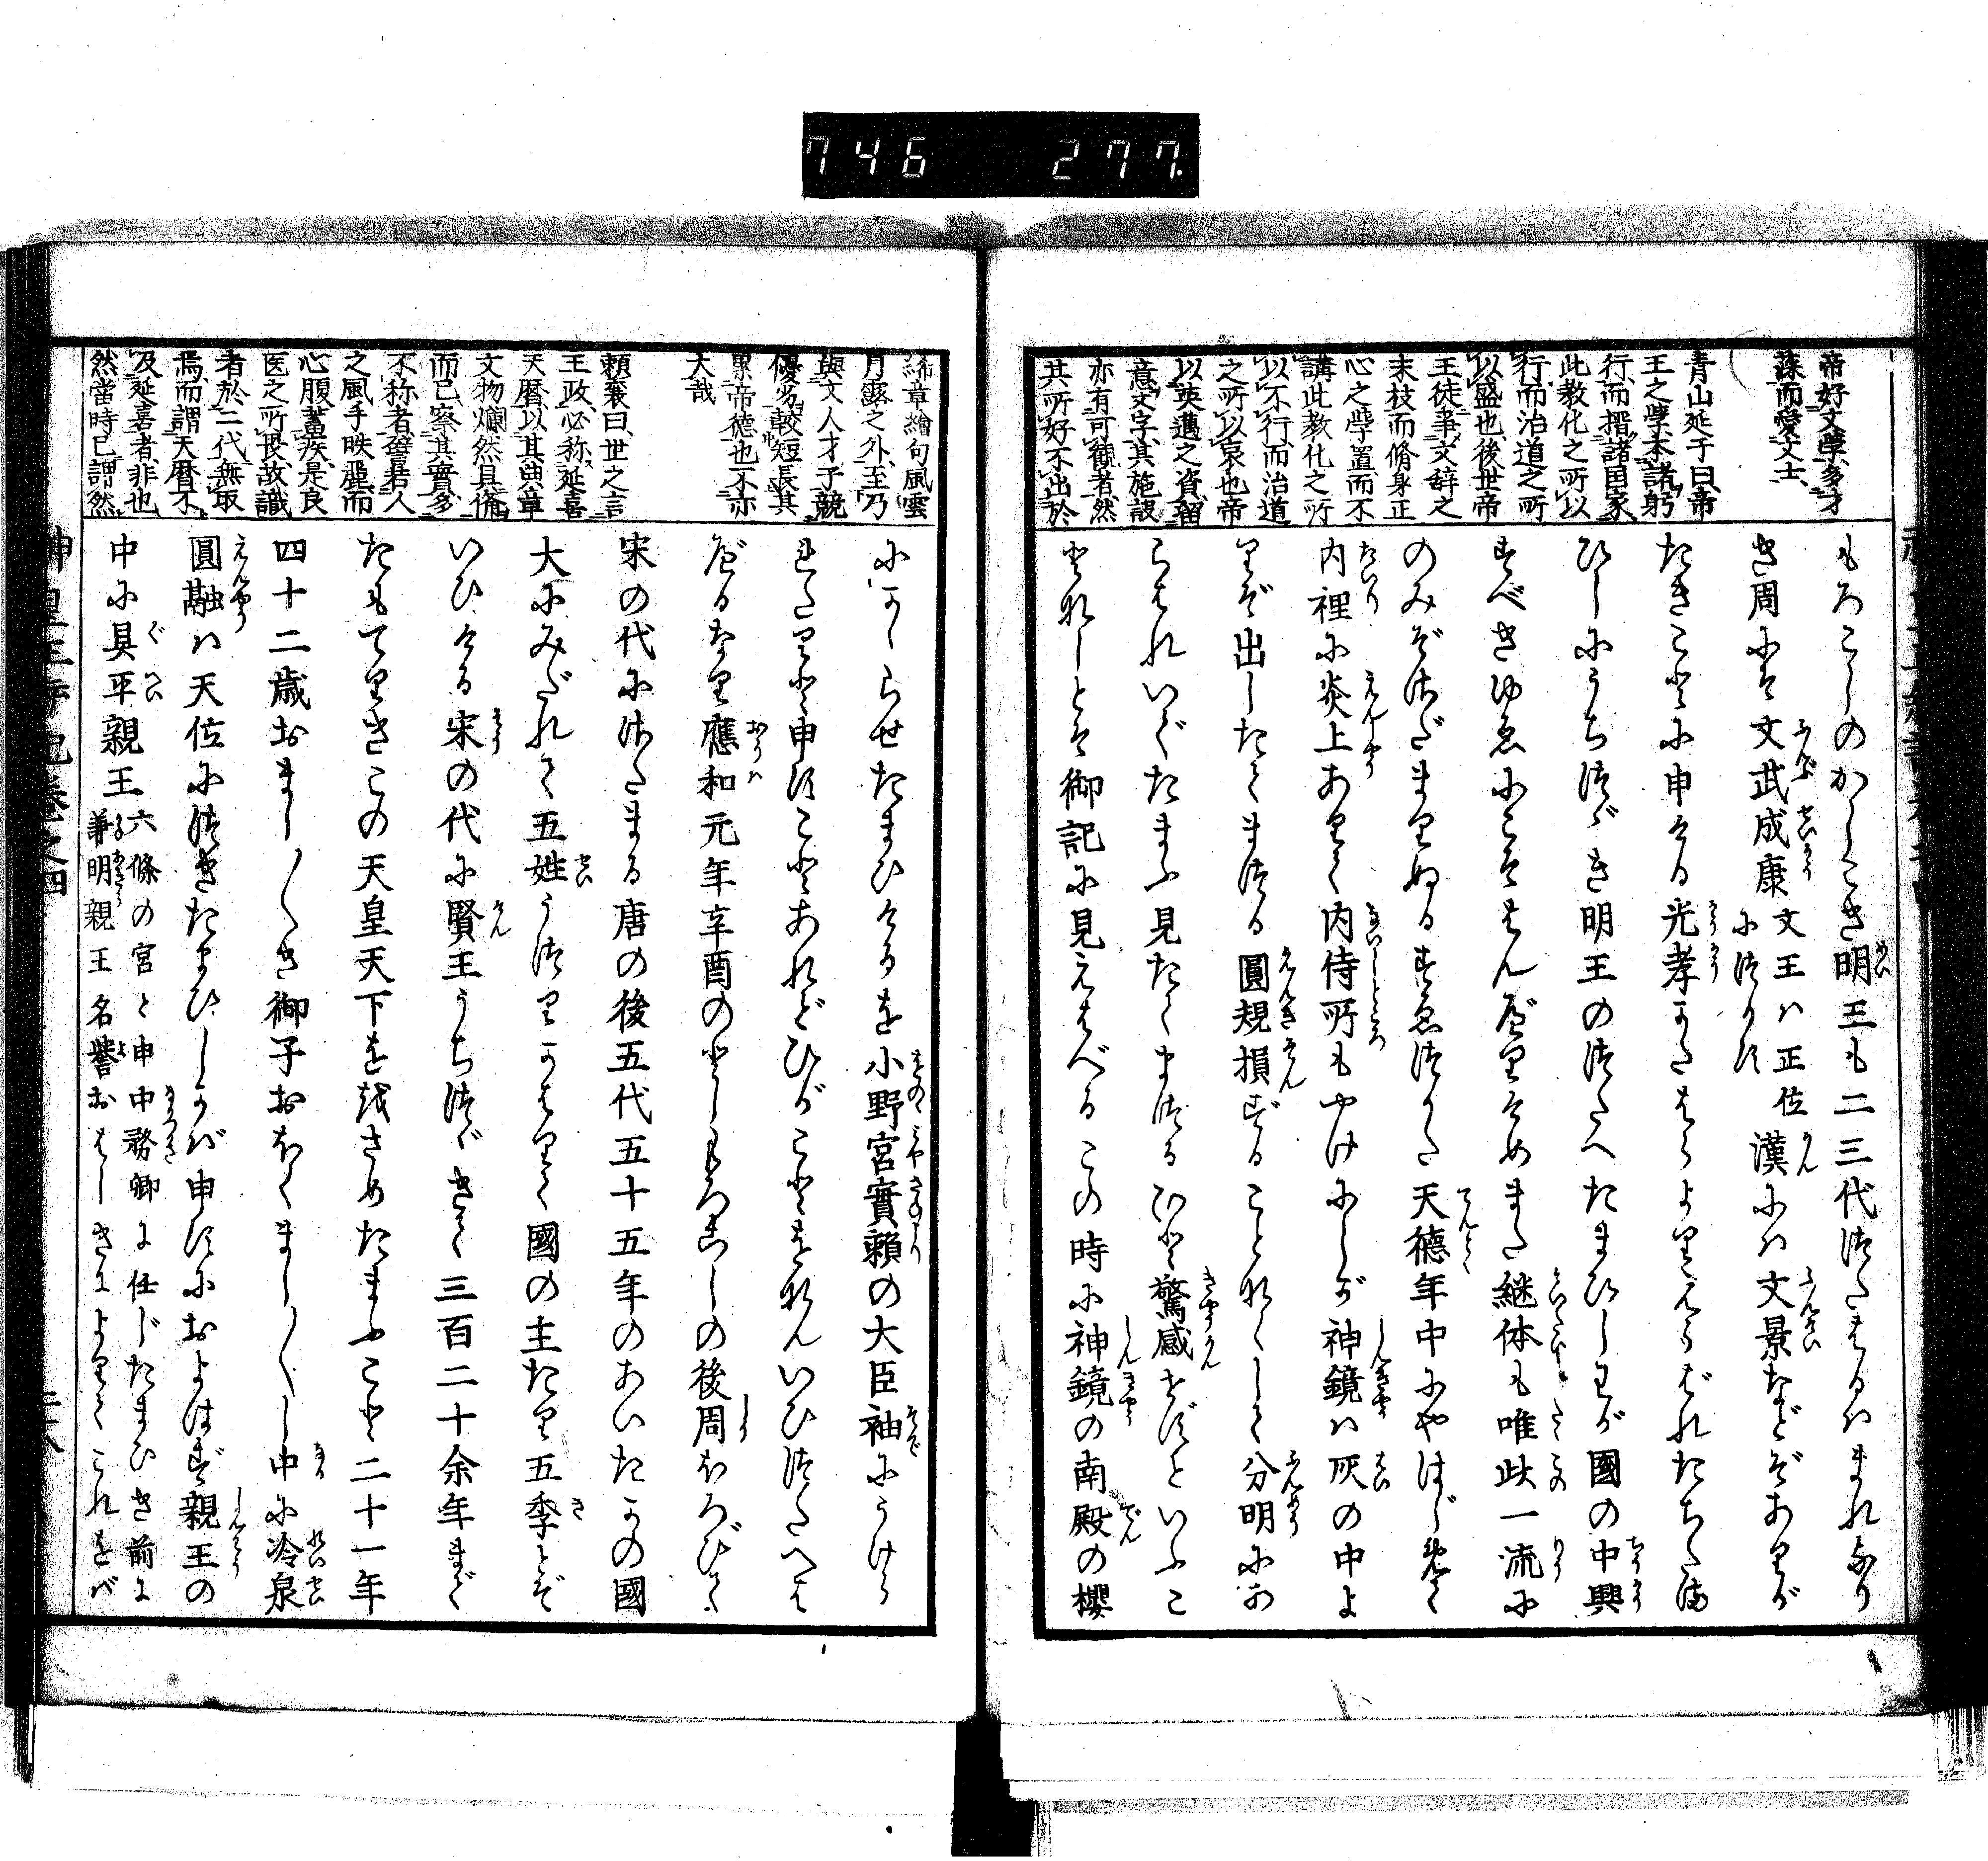 746 277.
帝好文學多才
藻而愛文士
青山延于曰帝
王之學本諸躬
行而措諸国家
此教化之所以
行而治道之所
以盛也後世帝
王徒事文辞之
末枝而脩身正
心之學置而不
講此教化之所
以不行而治道
之所以衰也帝
以英邁之資留
意文字其施設
亦有可観者然
其所好不出於
もろこしのかしこき明王も二三代つたはるはまれなり
き周にそ文武成康文王ハ正位につかす漢にハ文景などぞありが
たきことに申ける光孝かたはらよりえらばれたちたま
ひしにうちつゞき明王のつたへたまひしわが國の中興
すべきゆゑにこそはんべりそめまた継体も唯此一流に
のみぞさだまりぬるすゑつかた天德年中にやはじめて
内裡に炎上ありて内侍所もやけにしが神鏡ハ灰の中よ
りぞ出したてまつる圓規損ずることなくして分明にあ
らはれいでたまふ見たてまつるひと驚感せずといふこ
となしとそ御記に見えはべるこの時に神鏡の南殿の櫻
絺章繪句風雲
月露之外至乃
與文人才子競
優劣較短長其
累帝德也不亦
大哉
頼襄曰世之言
王政必称延喜
天暦以其典章
文物爛然具備
而已察其實多
不称者譬若人
之風手昳麗而
心腹蓄疾是良
医之所畏故識
者於二代無取
焉而謂天暦不
及延喜者非也
然當時已謂然
にかゝらせたまひけるを小野宮實頼の大臣袖にうけら
れたりと申すことあれどひがことをなんいひつたへは
べるなり應和元年辛酉のとしもろこしの後周ほろびて
宋の代にさだまる唐の後五代五十五年のあいたかの國
大にみだれて五姓うつりかはりて國の主たり五季とぞ
いひける宋の代に賢王うちつゞきて三百二十余年まで
たもてりきこの天皇天下を治さめたまふこと二十一年
四十二歳おまし〳〵き御子おほくまし〳〵し中に冷泉
圓融ハ天位につきたまひしかバ申すにおよはず親王の
中に具平親王六條の宮と申中務卿に任じたまひき前に兼明親王名誉おはしきによりてこれをバ
神皇正統記巻之四